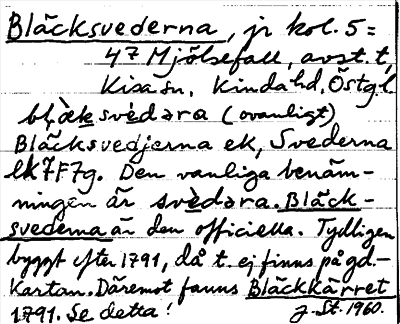 Bläcksvederna, jr kol. 5 =
47 Mjölsefall, avst. t,
Kisa sn, Kinda hd, Östgl
blæ̀ksvédara (ovanligt)
Bläcksvedjerna ek, Svederna
lk 7F7g. Den vanliga benäm-
ningen är svèdara. Bläck-
svederna är den officiella. Tydligen
byggt efter 1791, då t. ej finns på gd.-
kartan. Däremot fanns Bläckkärret
1791. Se detta! J. St. 1960.